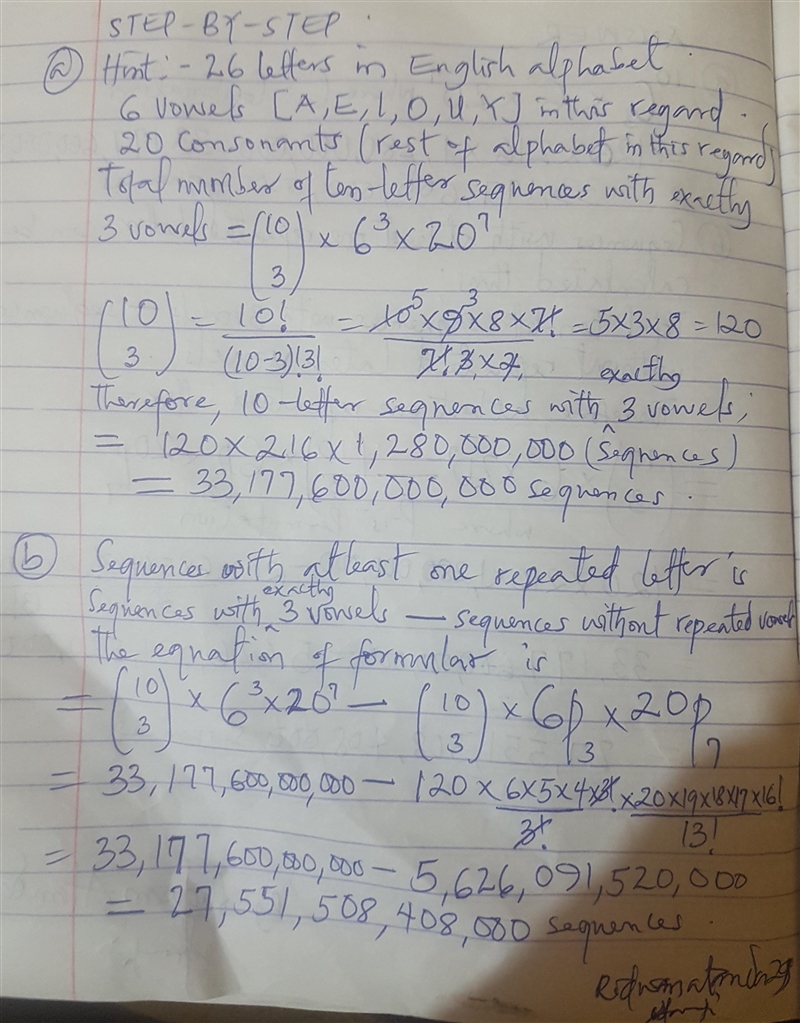 STEP-BY-STEP.
(a) Hint:- 26 letters in English alphabet.
6 vowels [A, E, I, O, U, Y] in this regard.
20 Consonants (rest of alphabet in this regard)
Total number of ten-letter sequences with exactly
3 vowels = (10 3) × 6³ × 20⁷
(10 3) = 10!/(10-3)!3! = 10⁵×9³×8×7!/7!.3.×2. = 5×3×8 = 120
Therefore, 10-letter sequences with exactly 3 vowels,
= 120 × 216 × 1,280,000,000 (sequences)
= 33,177,600,000,000 sequences.
(b) Sequences with atleast one repeated letter is
Sequences with exactly 3 vowels — sequences without repeated vowels
The equation of formular is
= (10 3) × 6³ × 20⁷ — (10 3) × 6P₃ × 20P₇
= 33,177,600,000,000 — 120 × 6×5×4×3!/3! × 20×19×18×17×16!/13!
= 33,177,600,000,000 — 5,626,091,520,000
= 27,551,508,408,000 sequences.